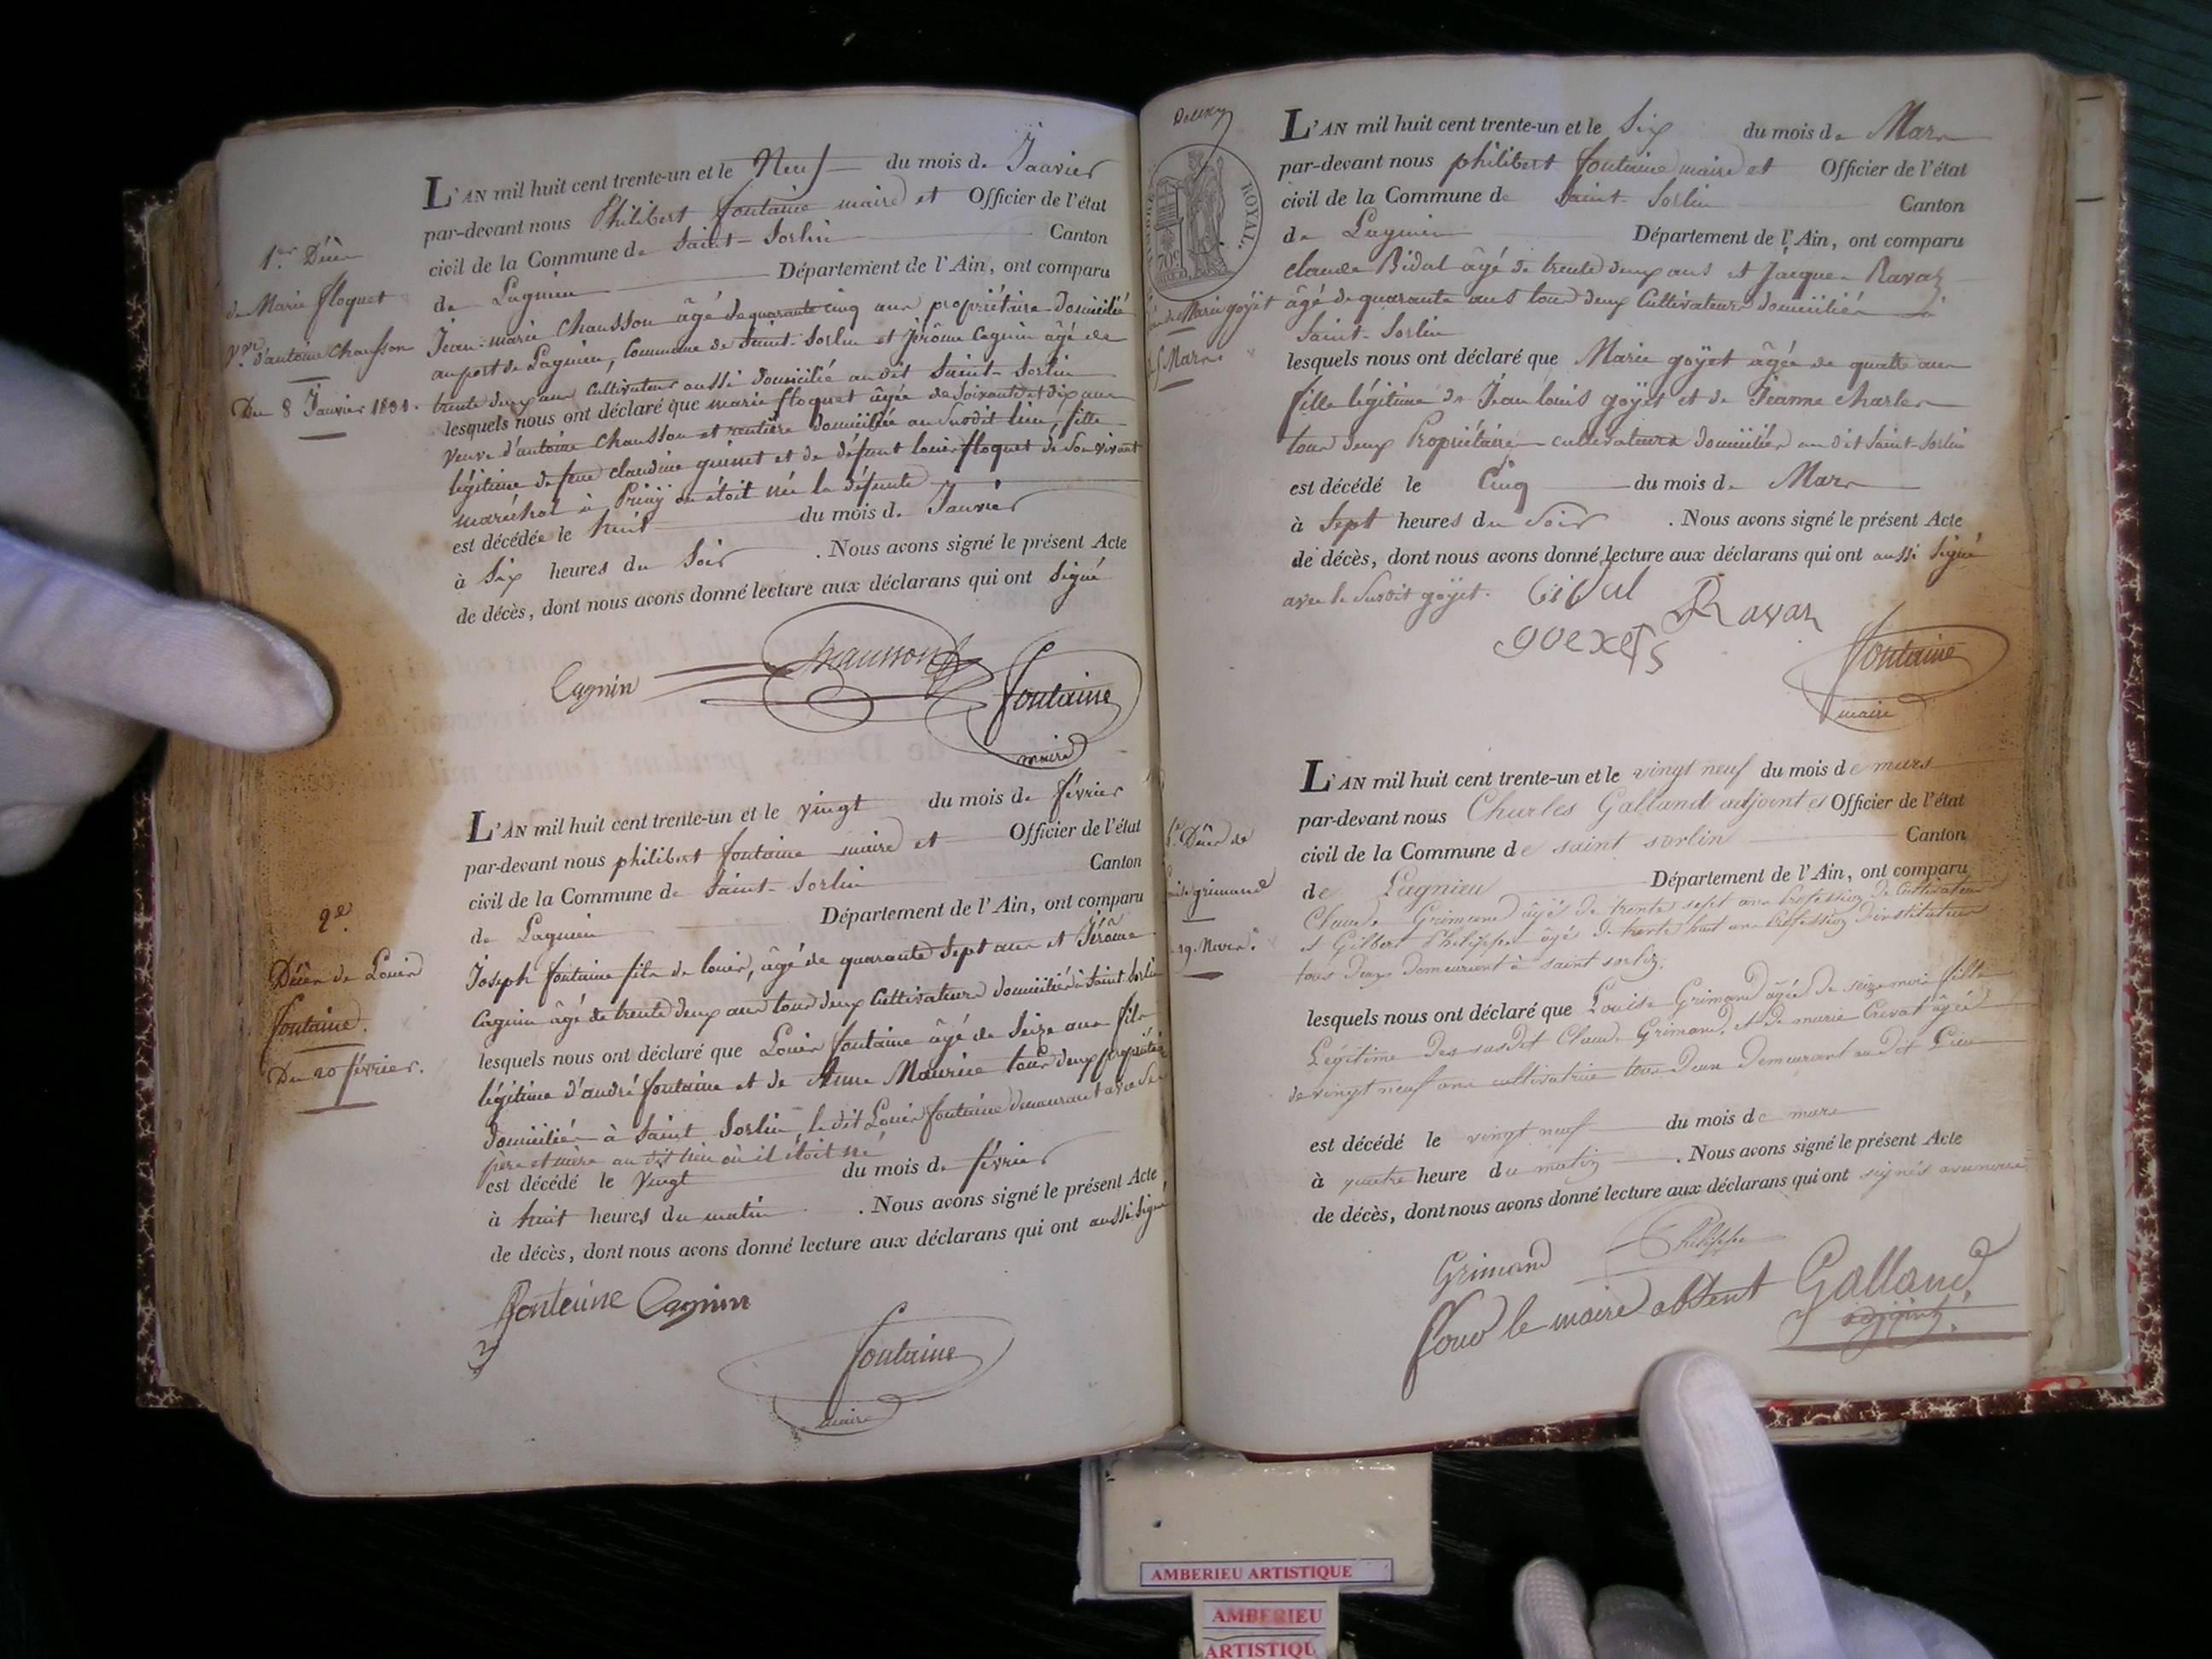 1.er Décès
de Marie floquet
V.ve d'antoine Chausson
Du 8 Janvier 1831.
L'AN mil huit cent trente-un et le Neuf du mois de Janvier
par-devant nous Philibert fontaine maire et Officier de l'état
civil de la Commune de Saint-Sorlin Canton
de Lagnieu Département de l'Ain, ont comparu
Jean-marie Chausson âgé de quarante cinq ans propriétaire domicilié
au port de Lagnieu, Commune de Saint-Sorlin et Jérôme Cagnin âgé de
trente deux ans Cultivateur aussi domicilié au dit Saint-Sorlin
lesquels nous ont déclaré que marie floquet âgée de Soixante et dix ans
veuve d'antoine Chausson et rentière domiciliée au Susdit lieu, fille
légitime de feue claudine et de défunt louis floquet de Son vivant
maréchal à où étoit née la défunte
est décédée le huit du mois de Janvier
à Six heures du Soir . Nous avons signé le présent Acte
de décès, dont nous avons donné lecture aux déclarans qui ont Signé
Cagnin Chausson fontaine
maire
2.e
Décès de Louis
fontaine.
Du 20 février.
L'AN mil huit cent trente-un et le vingt du mois de février
par-devant nous philibert fontaine maire et Officier de l'état
civil de la Commune de Saint-Sorlin Canton
de Lagnieu Département de l'Ain, ont comparu
Joseph fontaine fils de louis, âgé de quarante Sept ans et Jérôme
Cagnin âgé de trente deux ans tous deux Cultivateurs domiciliés à Saint Sorlin
lesquels nous ont déclaré que Louis fontaine âgé de Seize ans fils
légitime d'andré fontaine et de Anne Maurice tous deux propriétaires
domiciliés à Saint Sorlin, le dit Louis fontaine demeurant avec Ses
père et mère au dit lieu où il étoit né
est décédé le Vingt du mois de février
à huit heures du matin . Nous avons signé le présent Acte
de décès, dont nous avons donné lecture aux déclarans qui ont aussi Signé
fonteine Cagnin
fontaine
maire
TIMBRE ROYAL.
70c
de Marie goyet
5 Mars
L'AN mil huit cent trente-un et le Six du mois de Mars
par-devant nous philibert fontaine maire et Officier de l'état
civil de la Commune de Saint-Sorlin Canton
de Lagnieu Département de l'Ain, ont comparu
claude Bidal âgé de trente deux ans et Jacques Ravaz
âgé de quarante ans tous deux Cultivateurs domiciliés à
Saint-Sorlin
lesquels nous ont déclaré que Marie goyet âgée de quatre ans
fille légitime de Jean louis goyet et de Jeanne Charles
tous deux Propriétaires-cultivateurs domiciliés au dit Saint-Sorlin
est décédé le Cinq du mois de Mars
à Sept heures du Soir . Nous avons signé le présent Acte
de décès, dont nous avons donné lecture aux déclarans qui ont aussi Signé
avec le Susdit goyet. Bidal Ravaz
fontaine
maire
Décès de
Louise grimand
29.
L'AN mil huit cent trente-un et le vingt neuf du mois de mars
par-devant nous Charles Galland adjoint et Officier de l'état
civil de la Commune de saint sorlin Canton
de Lagnieu Département de l'Ain, ont comparu
Claude Grimand âgé de trente sept ans Profession de Cultivateur
et Gilbert Philippe âgé de trente huit ans Profession d'instituteur
tous deux demeurant à saint sorlin.
lesquels nous ont déclaré que Louise Grimand âgée de seize mois fille
Légitime des susdit Claude Grimand, et de marie Crevat âgée
de vingt neuf ans cultivatrice tous deux demeurant au dit Lieu
est décédé le vingt neuf du mois de mars
à quatre heure du matin . Nous avons signé le présent Acte
de décès, dont nous avons donné lecture aux déclarans qui ont signés avec nous
Grimand Philippe
Pour le maire absent Galland,
adjoint.
AMBERIEU ARTISTIQUE
AMBERIEU
ARTISTIQU